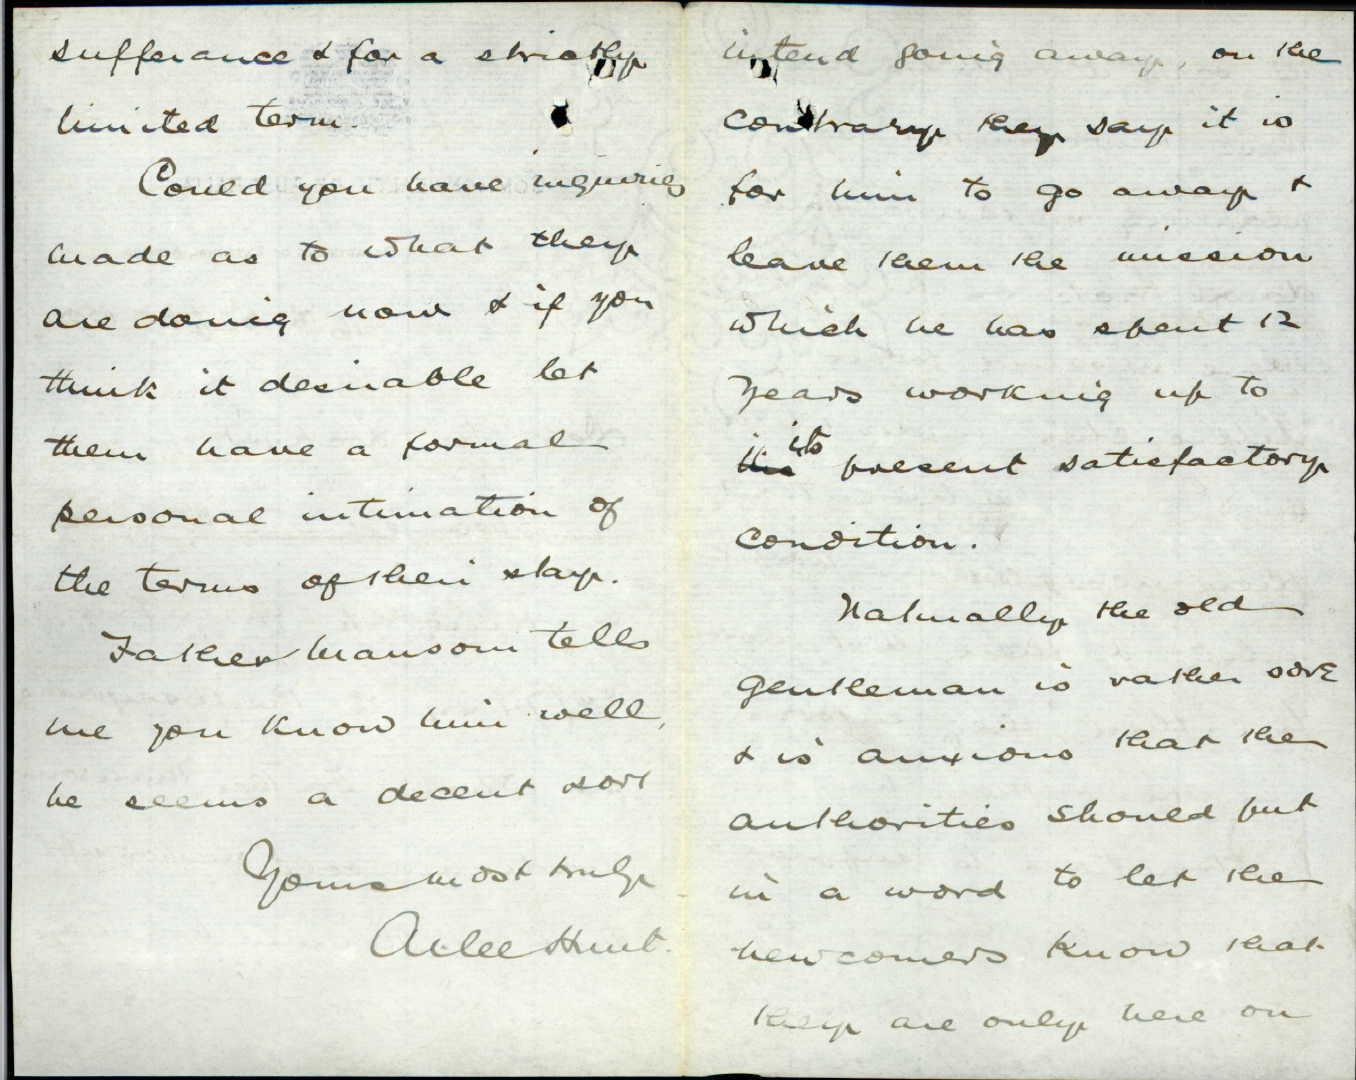 intend going away, on the
contrary they say it is
for him to go away &
leave them the mission
which he has spent 12
years working up to
its present satisfactory
condition.
Naturally the old
gentleman is rather sore
& is anxious that the
authorities should put
in a word to let the
newcomers know that
they are only here on
sufferance & for a strictly
limited term.
Could you have inquiries
made as to what they
are doing now & if you
think it desirable let
them have a formal
personal intimation of
the terms of their stay.
Father tells
me you know him well,
he seems a decent sort
Yours most truly
Atlee Hunt.